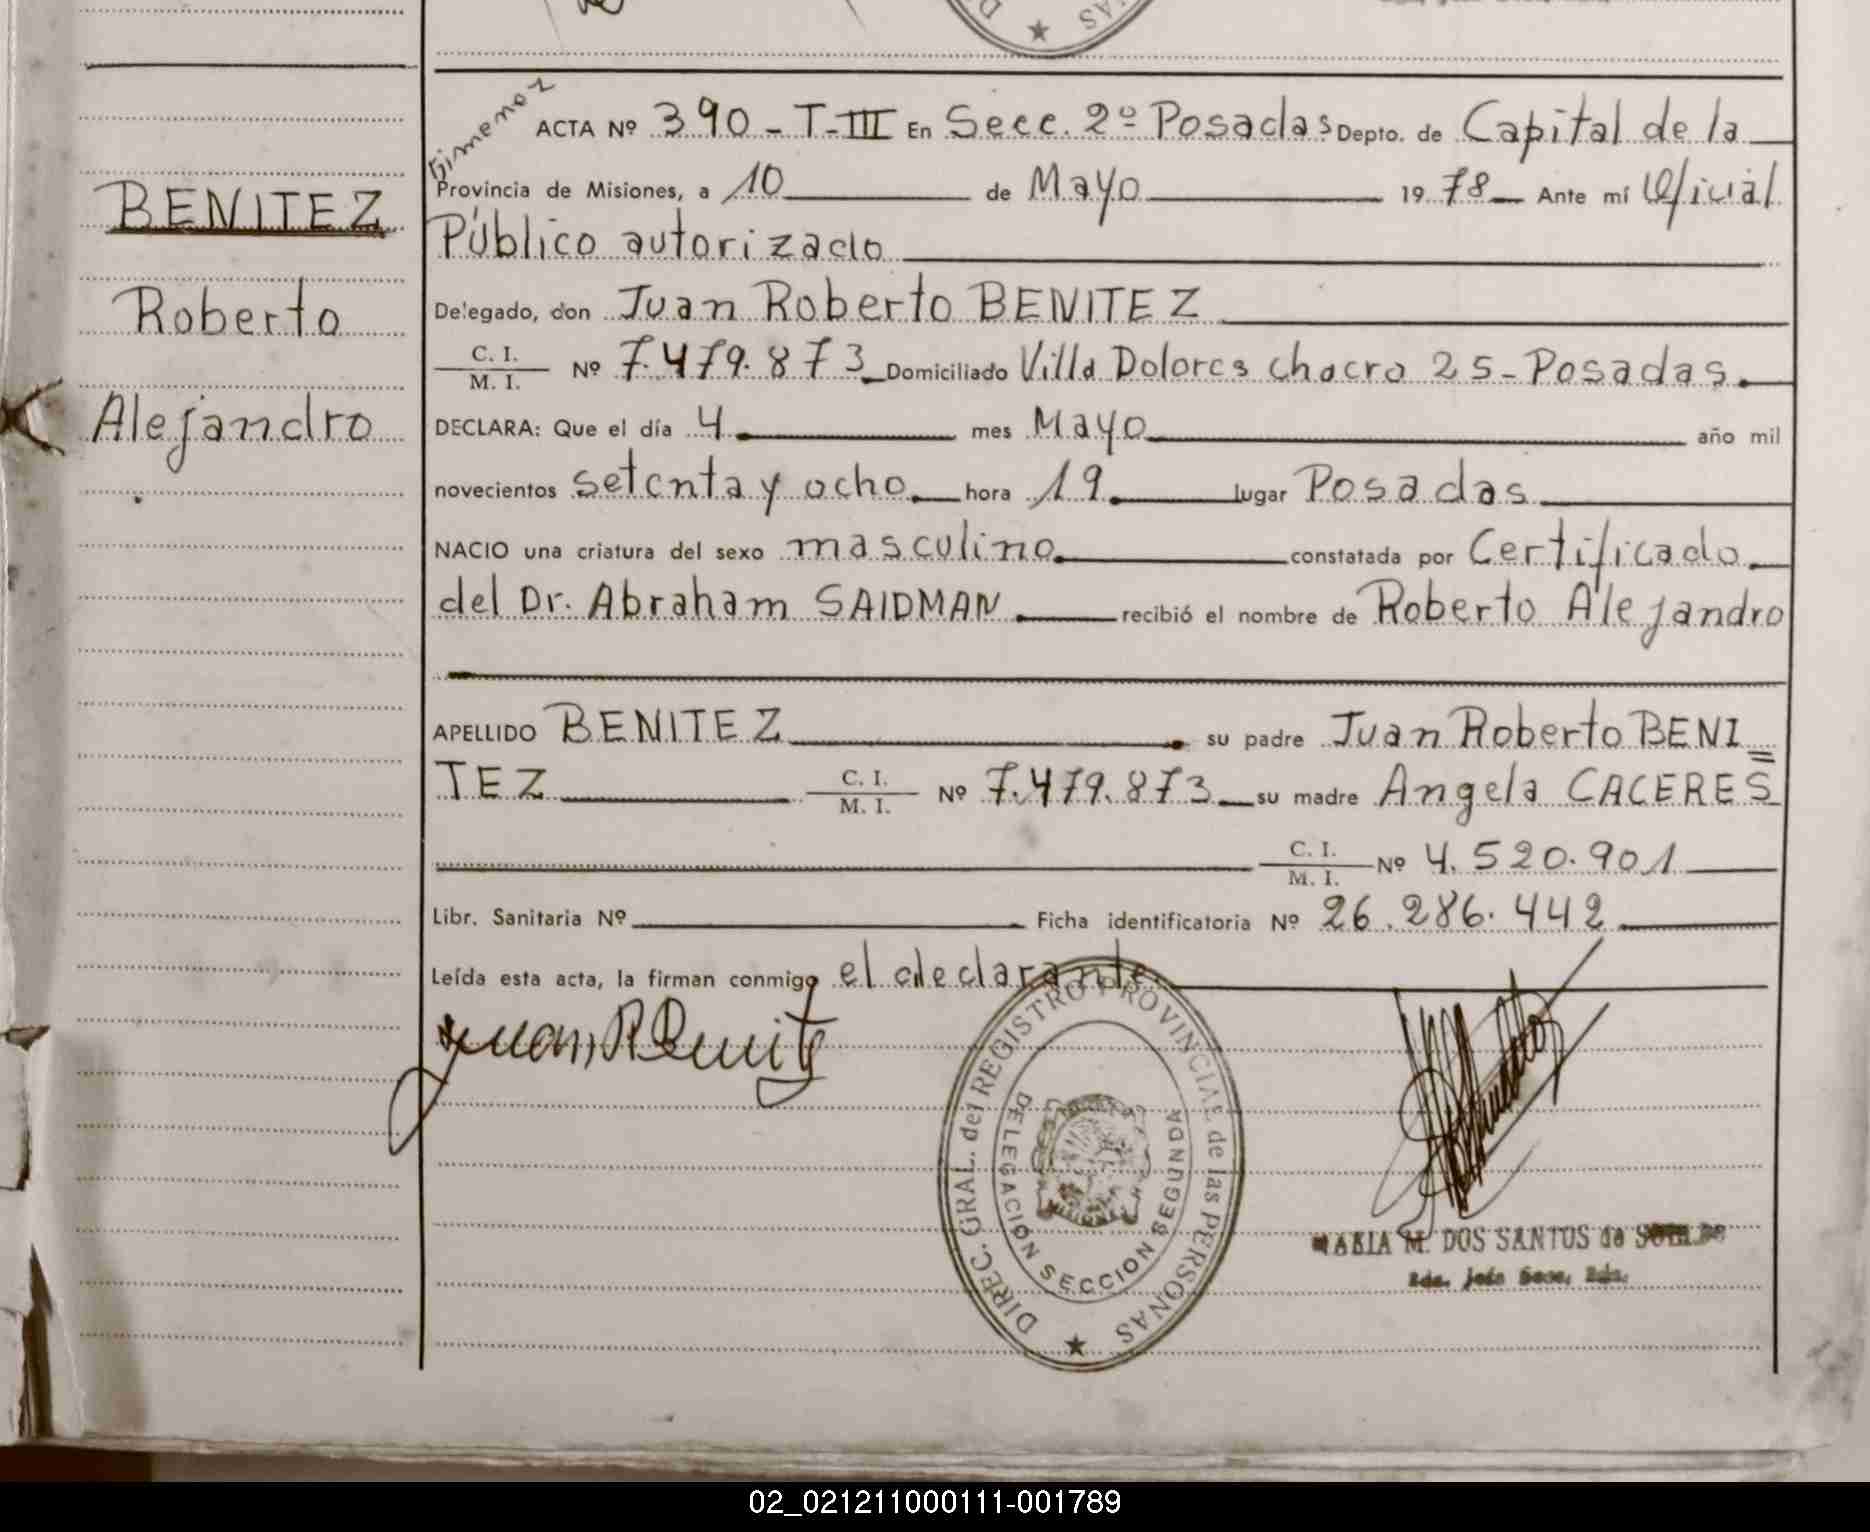 Gimenez
ACTA Nº 390 - T-III En Secc. 2º Posadas Depto. de Capital de la
Provincia de Misiones, a 10 de Mayo 1978 Ante mí Oficial
Público autorizado
Delegado, don Juan Roberto BENITEZ
C. I.
M. I. Nº 7.479.873 Domiciliado Villa Dolores chacra 25 - Posadas
DECLARA: Que el día 4 mes Mayo año mil
novecientos setenta y ocho hora 19 lugar Posadas
NACIO una criatura del sexo masculino constatada por Certificado
del Dr. Abraham SAIDMAN recibió el nombre de Roberto Alejandro
APELLIDO BENITEZ su padre Juan Roberto BENI=
TEZ C. I.
M. I. Nº 7.479.873 su madre Angela CACERES
C. I.
M. I. Nº 4.520.901
Libr. Sanitaria Nº Ficha identificatoria Nº 26.286.442
Leída esta acta, la firman conmigo el declarante
Juan R Benitez
BENITEZ
Roberto
Alejandro
DIREC. GRAL. del REGISTRO PROVINCIAL de las PERSONAS
DELEGACIÓN SECCION SEGUNDA
MISIONES
MARIA M. DOS SANTOS de
02_021211000111-001789